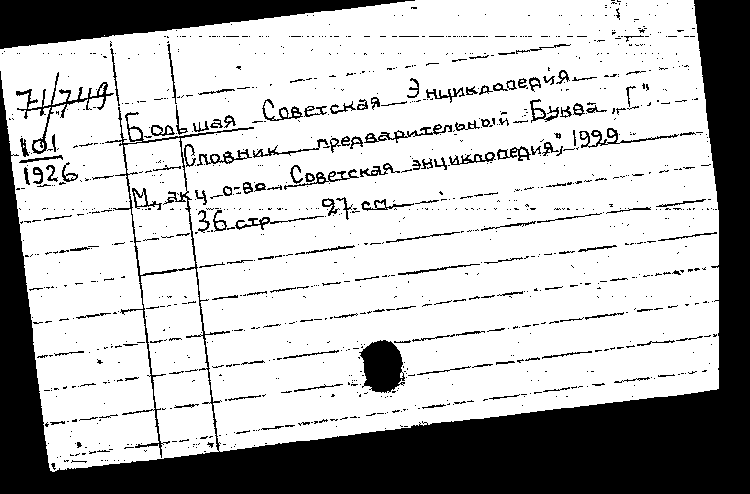 71/749
101
1926
Большая Советская Энциклопедия.
Словник предварительный Буква „Г"
М., акц о-во „Советская энциклопедия", 1929
36 стр 27 см.